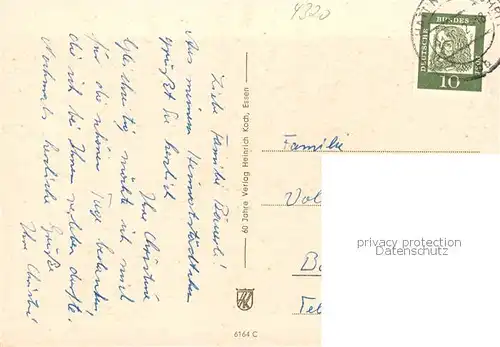 4320
Liebe Familie
Aus meinem Heimatstädtchen
grüßt Sie herzlich
Ihre Christine
Gleichzeitig möchte ich mich
für die schönen Tage bedanken,
die ich bei Ihnen verleben durfte.
Nochmals herzliche Grüße
Ihre Christine
60 Jahre Verlag Heinrich Koch, Essen
6164 C
DEUTSCHE BUNDESPOST
10
Familie
privacy protection
Datenschutz